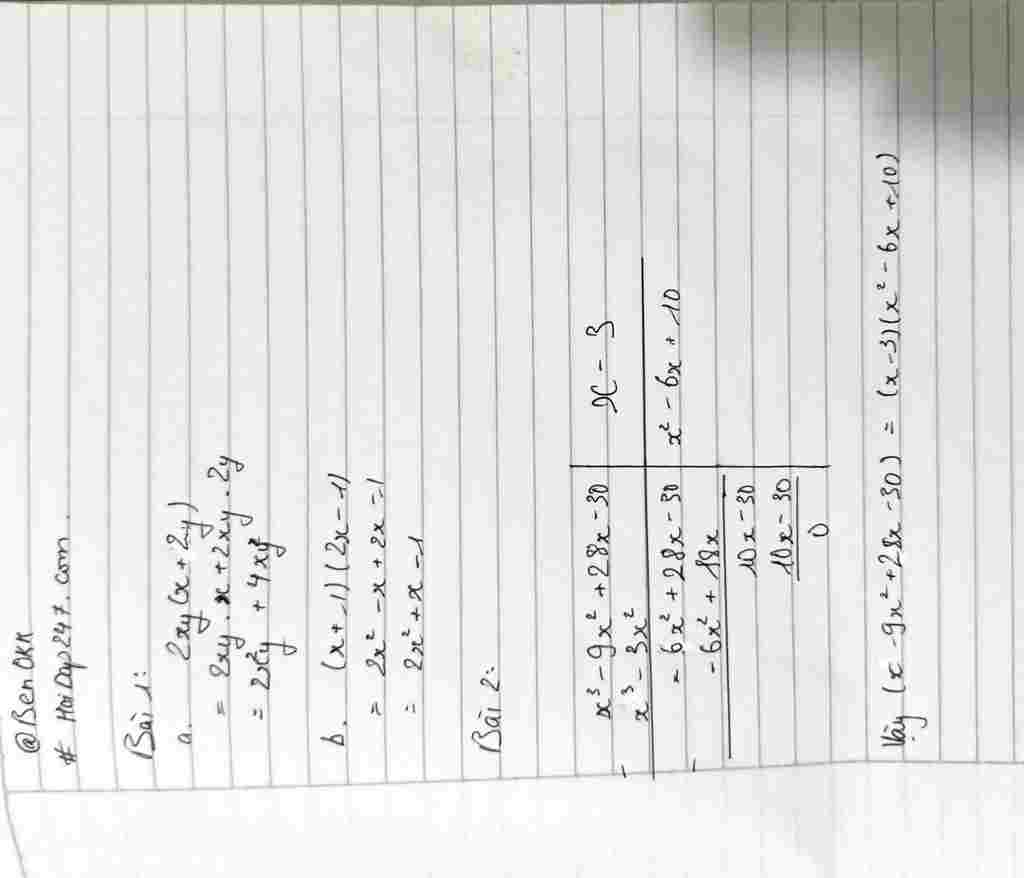 @BenOKK
# HoiDap247.com.
Bài 1:
a. 2xy(x+2y)
= 2xy.x+2xy.2y
= 2x²y + 4xy²
b. (x+1)(2x-1)
= 2x² -x+2x-1
= 2x²+x-1
Bài 2:
x³-9x²+28x-30 x-3
- x³-3x²
-6x²+28x-30 x²-6x+10
- -6x²+18x
10x-30
10x-30
0
Vậy (x-9x²+28x-30) = (x-3)(x²-6x+10)